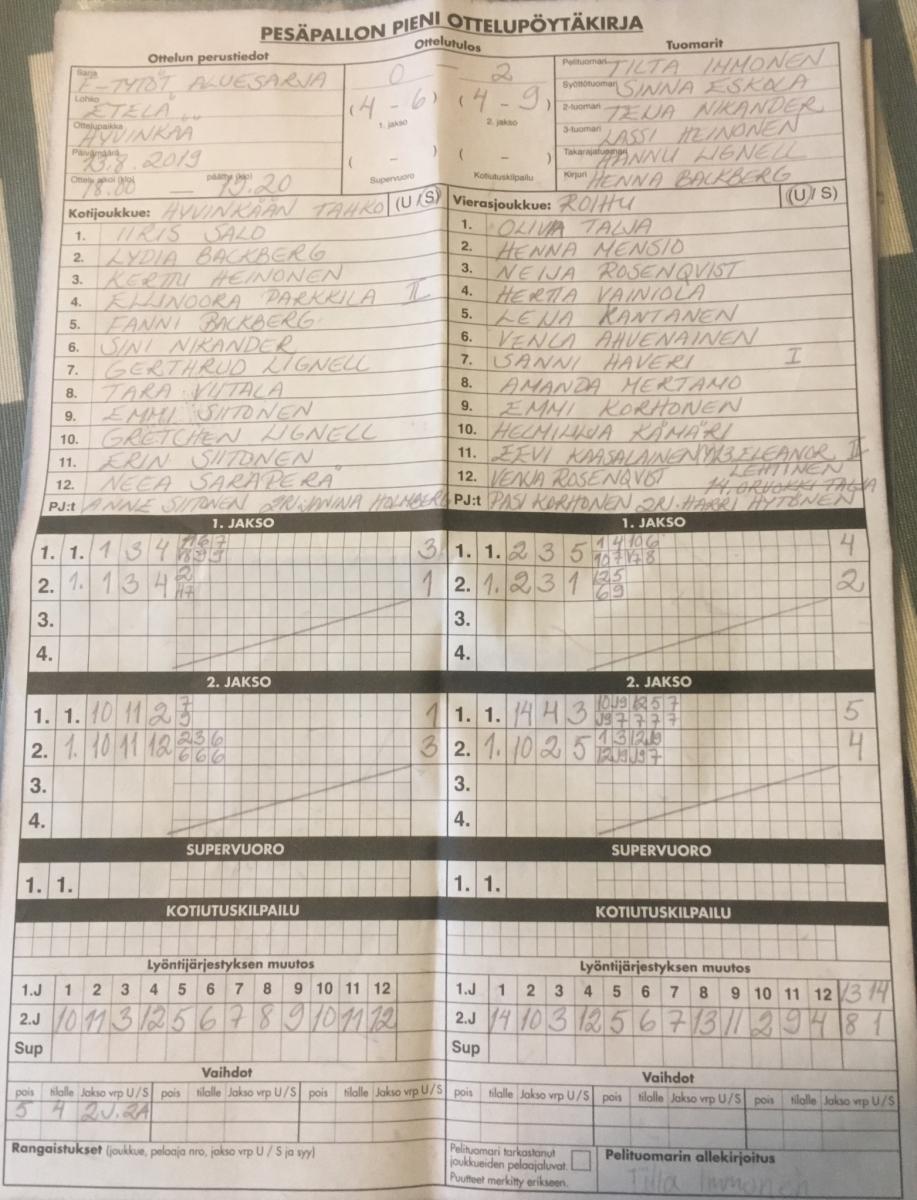 PESÄPALLON PIENI OTTELUPÖYTÄKIRJA
Ottelun perustiedot
Ottelutulos
Tuomarit
Sarja E-TYTÖT ALUESARJA
Lohko ETELÄ
Ottelupaikka HYVINKÄÄ
Päivämäärä 23.8.2019
Ottelu alkoi (klo) 18.00 — päättyi (klo) 19.20
0 — 2
(4 - 6) (4 - 9)
1. jakso 2. jakso
( - ) ( - )
Supervuoro Kotiutuskilpailu
Pelituomari
Syöttötuomari SINNA ESKOLA
2-tuomari TEIJA NIKANDER
3-tuomari LASSI HEINONEN
Takarajatuomari HANNU LIGNELL
Kirjuri HENNA BACKBERG
Kotijoukkue: HYVINKÄÄN TAHKO (U/S)
1. IIRIS SALO
2. LYDIA BACKBERG
3. KERTTU HEINONEN
4. ELLINOORA PARKKILA II
5. FANNI BACKBERG
6. SINI NIKANDER
7. GERTHRUD LIGNELL
8. TARA VIITALA
9. EMMI SIITONEN
10. GRETCHEN LIGNELL
11. ERIN SIITONEN
12. NEEA SARAPERÄ
PJ:t ANNE SIITONEN 2PJ:JANINA HOLMBERG
Vierasjoukkue: ROIHU (U/S)
1. OLIVIA TALJA
2. HENNA MENSIO
3. NEIJA ROSENQVIST
4. HERTTA VAINIOLA
5. LEIJA RANTANEN
6. VENLA AHVENAINEN
7. SANNI HAVERI I
8. AMANDA MERTAMO
9. EMMI KORHONEN
10. HELMI KÄMÄRI
11. EEVI KAASALAINEN 13. ELEANOR LEHTINEN II
12. VENJA ROSENQVIST 14. ORVOKKI TALJA
PJ:t PASI KORHONEN 2PJ. HARRI HYTÖNEN
1. JAKSO
1. 1. 1 3 4 3
2. 1. 1 3 4 1
3.
4.
1. JAKSO
1. 1. 2 3 5 4
2. 1. 2 3 1 2
3.
4.
2. JAKSO
1. 1. 10 11 2 1
2. 1. 10 11 12 2 3 6 3
6 6 6
3.
4.
2. JAKSO
1. 1. 14 4 3 5
2. 1. 10 2 5 4
3.
4.
SUPERVUORO
1. 1.
SUPERVUORO
1. 1.
KOTIUTUSKILPAILU
KOTIUTUSKILPAILU
Lyöntijärjestyksen muutos
1.J 1 2 3 4 5 6 7 8 9 10 11 12
2.J 10 11 3 12 5 6 7 8 9 10 11 12
Sup
Lyöntijärjestyksen muutos
1.J 1 2 3 4 5 6 7 8 9 10 11 12 13 14
2.J 14 10 3 12 5 6 7 13 11 2 9 4 8 1
Sup
Vaihdot
pois tilalle Jakso vrp U/S pois tilalle Jakso vrp U/S pois tilalle Jakso vrp U/S
5 4 2J.2A
Vaihdot
pois tilalle Jakso vrp U/S pois tilalle Jakso vrp U/S pois tilalle Jakso vrp U/S
Rangaistukset (joukkue, pelaaja nro, jakso vrp U / S ja syy)
Pelituomari tarkastanut
joukkueiden pelaajaluvat.
Puutteet merkitty erikseen.
Pelituomarin allekirjoitus